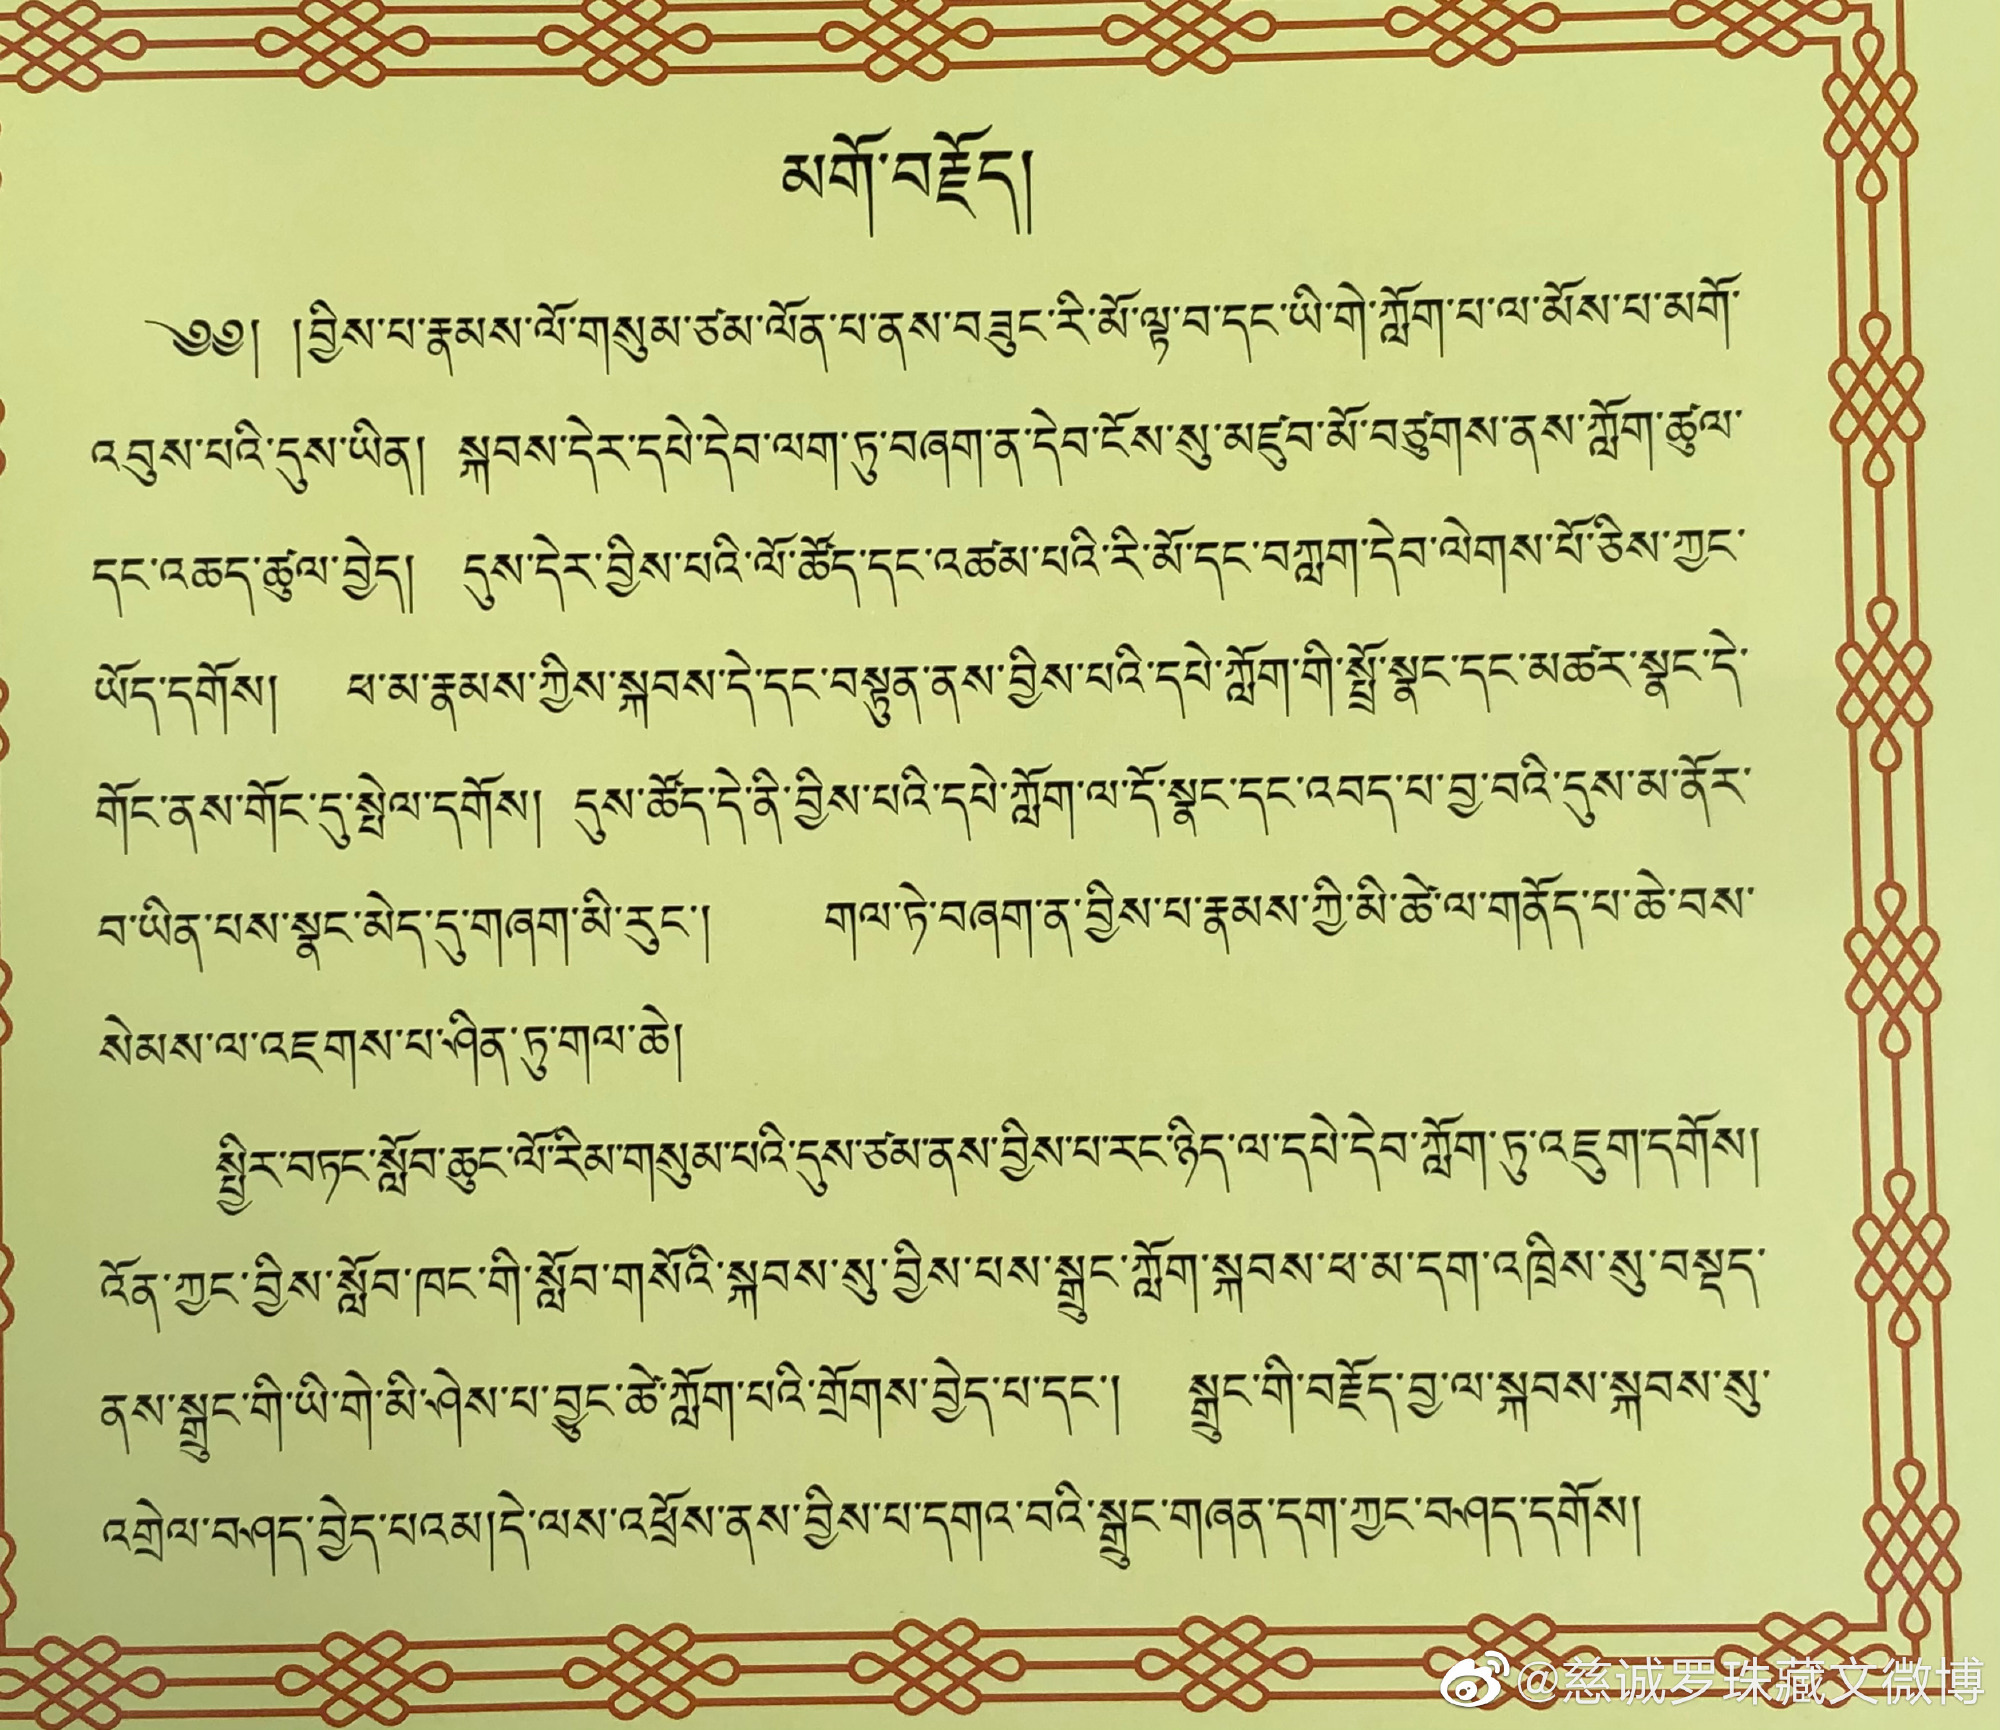 མགོ་བརྗོད།
༄༅། །བྱིས་པ་རྣམས་ལོ་གསུམ་ཙམ་ལོན་པ་ནས་བཟུང་རི་མོ་ལྟ་བ་དང་ཡི་གེ་ཀློག་པ་ལ་མོས་པ་མགོ་
འབུས་པའི་དུས་ཡིན། སྐབས་དེར་དཔེ་དེབ་ལག་ཏུ་བཞག་ན་དེབ་ངོས་སུ་མཛུབ་མོ་བཙུགས་ནས་ཀློག་ཚུལ་
དང་འཆད་ཚུལ་བྱེད། དུས་དེར་བྱིས་པའི་ལོ་ཚོད་དང་འཚམ་པའི་རི་མོ་དང་བཀླག་དེབ་ལེགས་པོ་ཅིས་ཀྱང་
ཡོད་དགོས། ཕ་མ་རྣམས་ཀྱིས་སྐབས་དེ་དང་བསྟུན་ནས་བྱིས་པའི་དཔེ་ཀློག་གི་སྤྲོ་སྣང་དང་མཚར་སྣང་དེ་
གོང་ནས་གོང་དུ་སྤེལ་དགོས། དུས་ཚོད་དེ་ནི་བྱིས་པའི་དཔེ་ཀློག་ལ་དོ་སྣང་དང་འབད་པ་བྱ་བའི་དུས་མ་ནོར་
བ་ཡིན་པས་སྣང་མེད་དུ་གཞག་མི་རུང་། གལ་ཏེ་བཞག་ན་བྱིས་པ་རྣམས་ཀྱི་མི་ཚེ་ལ་གནོད་པ་ཆེ་བས་
སེམས་ལ་འཇགས་པ་ཤིན་ཏུ་གལ་ཆེ།
སྤྱིར་བཏང་སློབ་ཆུང་ལོ་རིམ་གསུམ་པའི་དུས་ཙམ་ནས་བྱིས་པ་རང་ཉིད་ལ་དཔེ་དེབ་ཀློག་ཏུ་འཇུག་དགོས།
འོན་ཀྱང་བྱིས་སློབ་ཁང་གི་སློབ་གསོའི་སྐབས་སུ་བྱིས་པས་སྒྲུང་ཀློག་སྐབས་ཕ་མ་དག་འཁྲིས་སུ་བསྡད་
ནས་སྒྲུང་གི་ཡི་གེ་མི་ཤེས་པ་བྱུང་ཚེ་ཀློག་པའི་གྲོགས་བྱེད་པ་དང་། སྒྲུང་གི་བརྗོད་བྱ་ལ་སྐབས་སྐབས་སུ་
འགྲེལ་བཤད་བྱེད་པའམ།དེ་ལས་འཕྲོས་ནས་བྱིས་པ་དགའ་བའི་སྒྲུང་གཞན་དག་ཀྱང་བཤད་དགོས།
@慈诚罗珠藏文微博